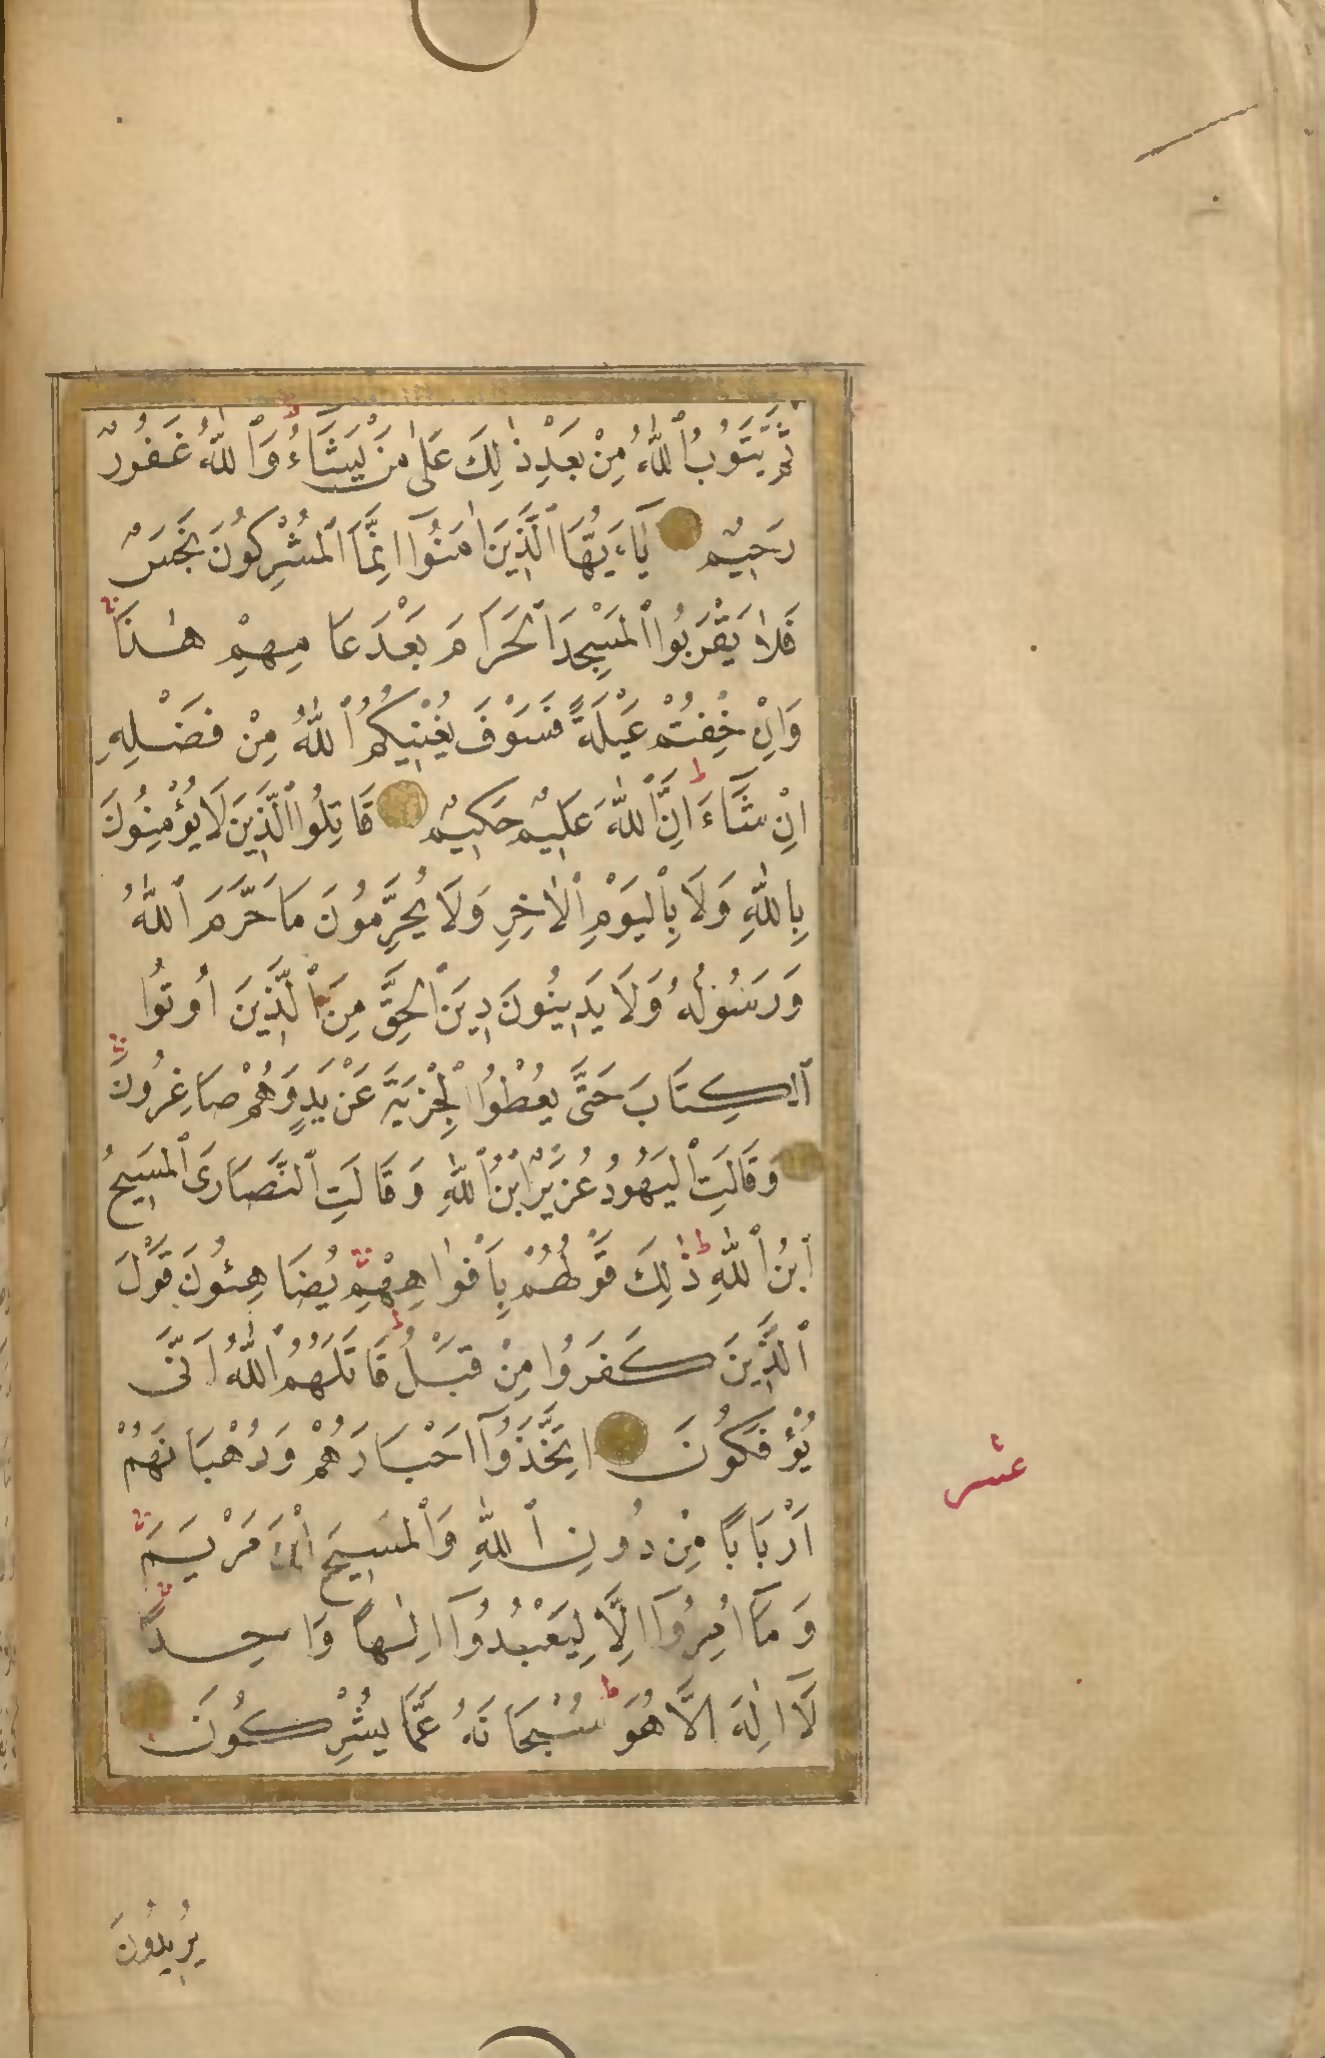 ثُمَّ يَتُوبُ ٱللّٰهُ مِنْ بَعْدِ ذٰلِكَ عَلٰى مَنْ يَشَٓاءُ ط وَٱللّٰهُ غَفُورٌ
رَحِيمٌ يَٓاءَيُّهَا ٱلَّذِينَ اٰمَنُٓوا اِنَّمَا ٱلْمُشْرِكُونَ نَجَسٌ
فَلَا يَقْرَبُوا ٱلْمَسْجِدَ ٱلْحَرَامَ بَعْدَ عَامِهِمْ هٰذَا
وَاِنْ خِفْتُمْ عَيْلَةً فَسَوْفَ يُغْنِيكُمُ ٱللّٰهُ مِنْ فَضْلِهِ
اِنْ شَٓاءَ ط اِنَّ ٱللّٰهَ عَلِيمٌ حَكِيمٌ قَاتِلُوا ٱلَّذِينَ لَا يُؤْمِنُونَ
بِٱللّٰهِ وَلَا بِٱلْيَوْمِ ٱلْاٰخِرِ وَلَا يُحَرِّمُونَ مَا حَرَّمَ ٱللّٰهُ
وَرَسُولُهُ وَلَا يَدِينُونَ دِينَ ٱلْحَقِّ مِنَ ٱلَّذِينَ اُوتُوا
ٱلْكِتَابَ حَتَّى يُعْطُوا ٱلْجِزْيَةَ عَنْ يَدٍ وَهُمْ صَاغِرُونَ
وَقَالَتِ ٱلْيَهُودُ عُزَيْرٌ ٱبْنُ ٱللّٰهِ وَقَالَتِ ٱلنَّصَارَى ٱلْمَسِيحُ
ٱبْنُ ٱللّٰهِ ط ذٰلِكَ قَوْلُهُمْ بِاَفْوَاهِهِمْ يُضَاهِئُونَ قَوْلَ
ٱلَّذِينَ كَفَرُوا مِنْ قَبْلُ ط قَاتَلَهُمُ ٱللّٰهُ اَنَّى
يُؤْفَكُونَ اِتَّخَذُٓوا اَحْبَارَهُمْ وَرُهْبَانَهُمْ
اَرْبَابًا مِنْ دُونِ ٱللّٰهِ وَٱلْمَسِيحَ ٱبْنَ مَرْيَمَ
وَمَٓا اُمِرُٓوا اِلَّا لِيَعْبُدُٓوا اِلٰهًا وَاحِدًا
لَٓا اِلٰهَ اِلَّا هُوَ ط سُبْحَانَهُ عَمَّا يُشْرِكُونَ
عشر
يُرِيدُونَ